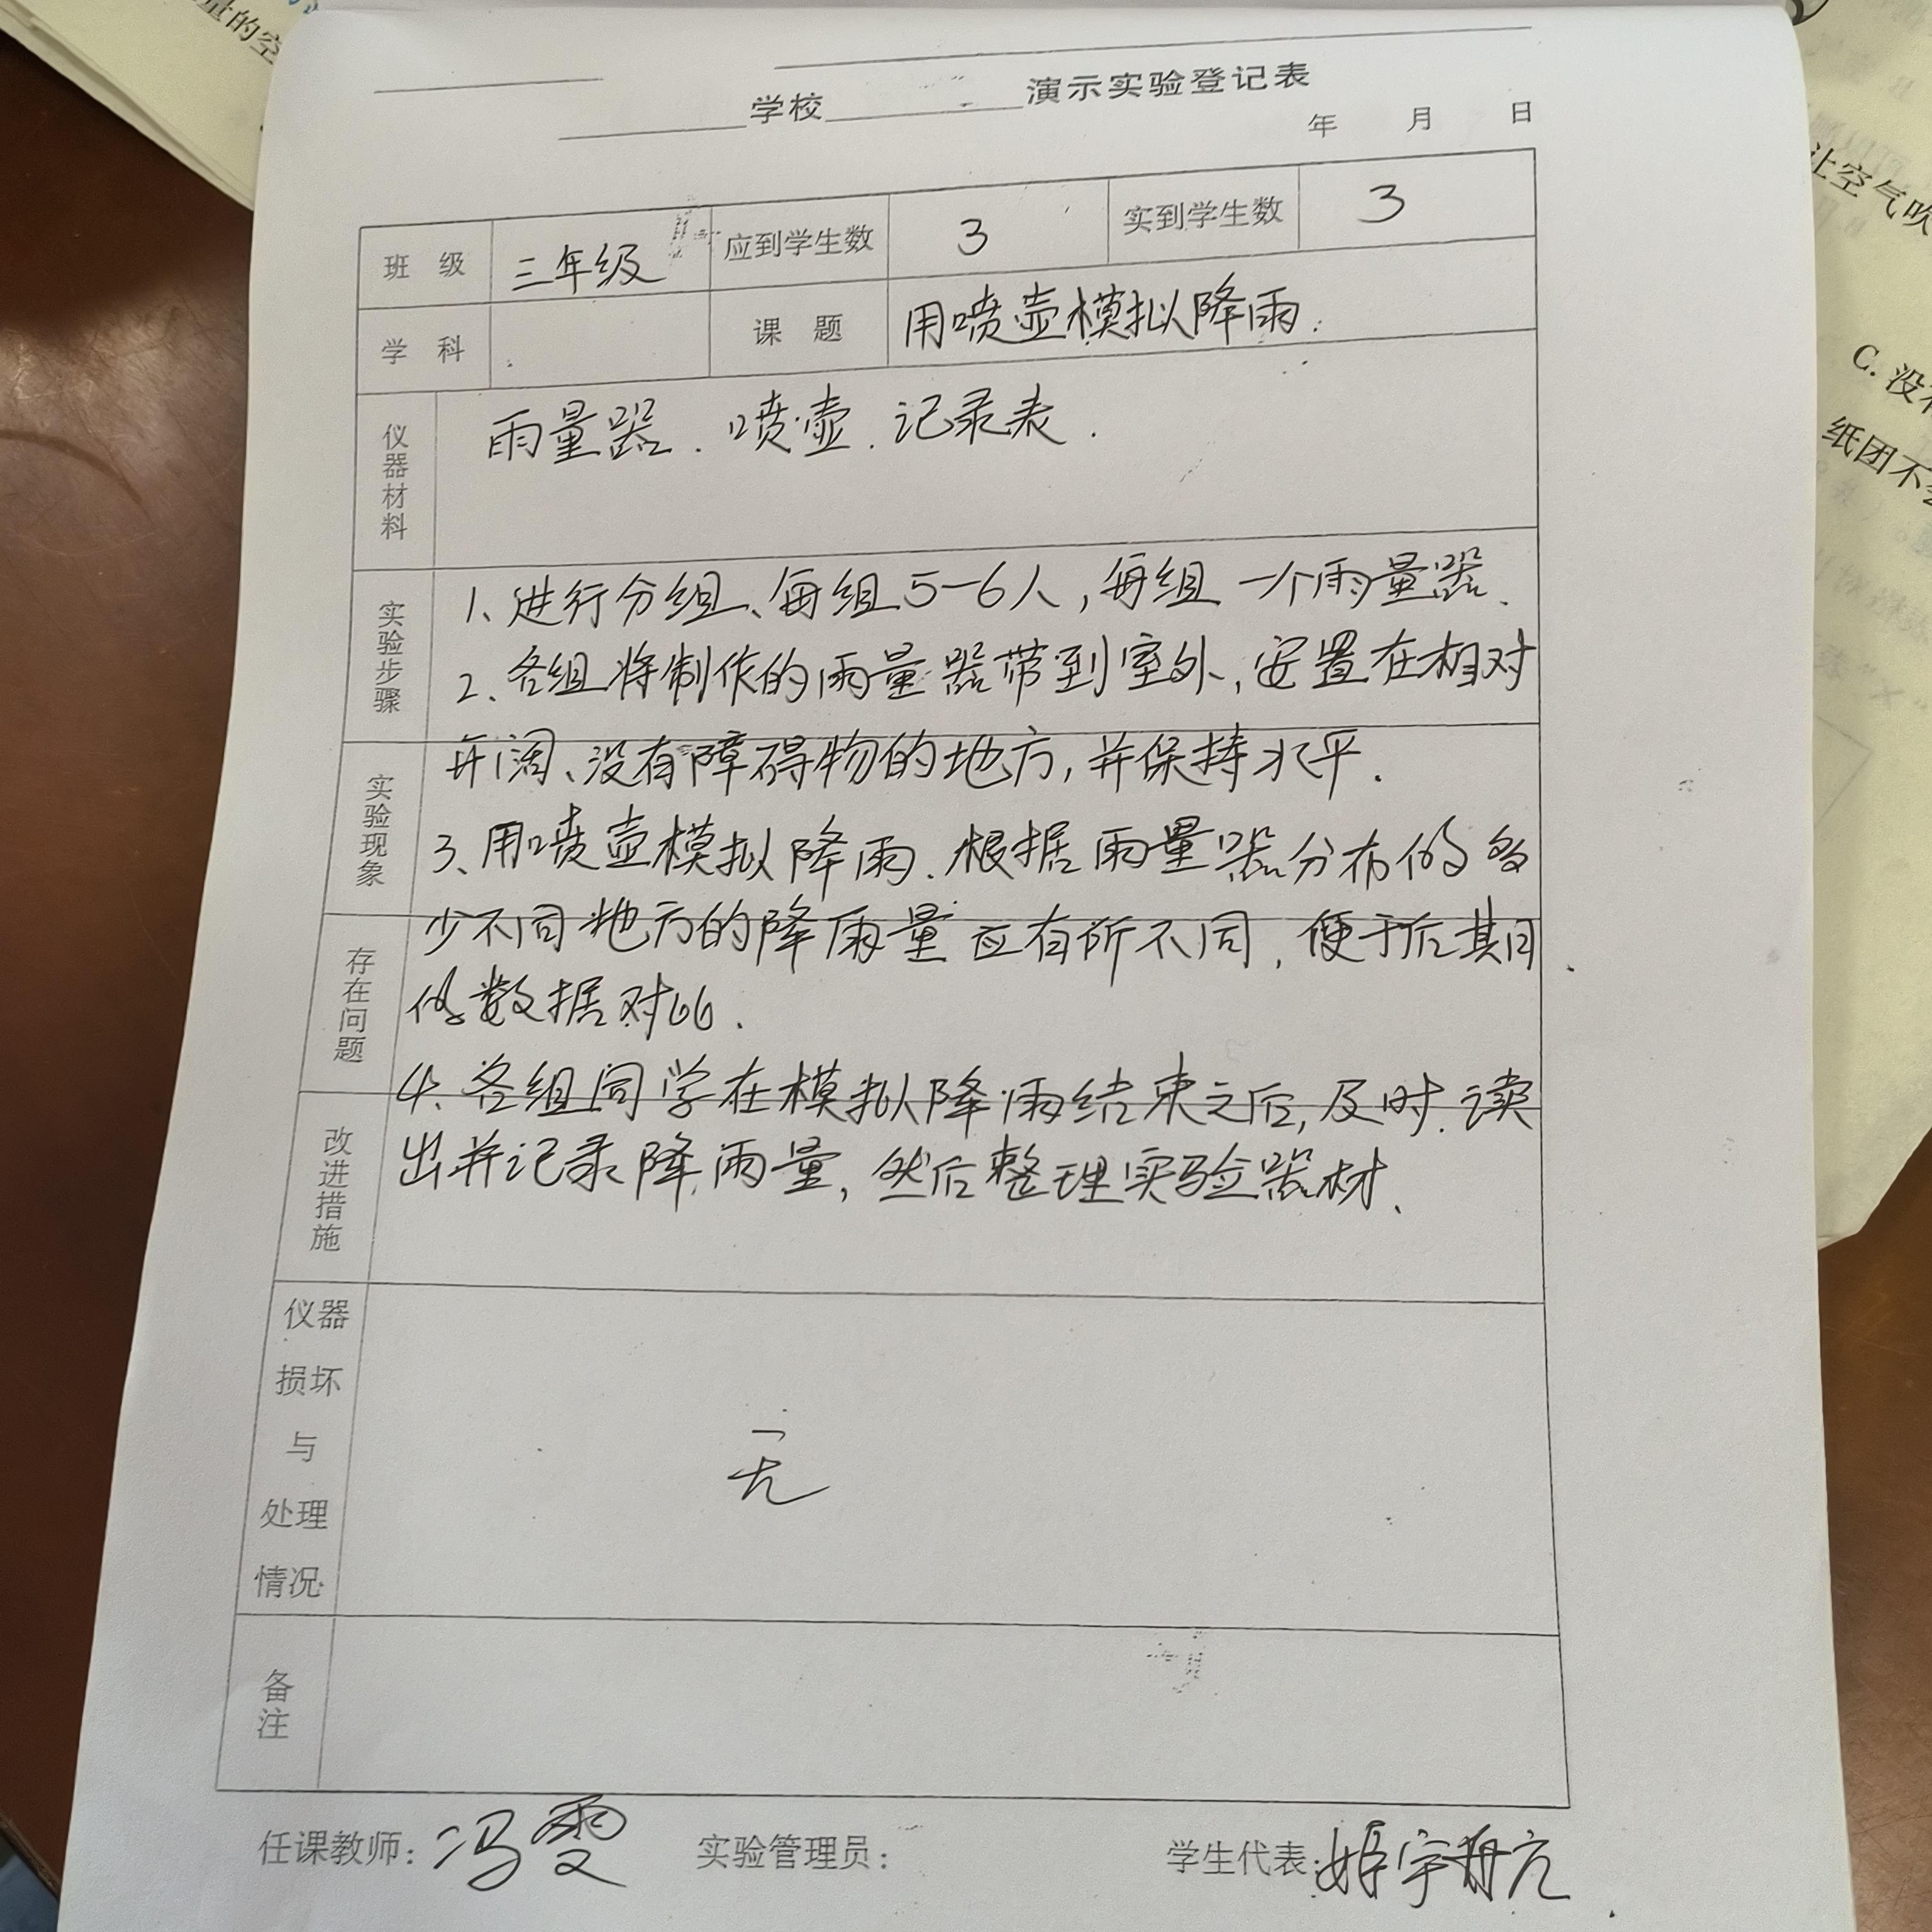 量的空
学校 演示实验登记表
年 月 日
班 级 三年级 应到学生数 3 实到学生数 3
学 科 课 题 用喷壶模拟降雨.
仪器材料 雨量器. 喷壶. 记录表.
实验步骤
1、进行分组、每组5-6人,每组一个雨量器、
2、各组将制作的雨量器带到室外,安置在相对
开阔、没有障碍物的地方,并保持水平.
实验现象
3、用喷壶模拟降雨.根据雨量器分布的多
少不同地方的降雨量应有所不同,便于后期
做数据对比.
存在问题
4、各组同学在模拟降雨结束之后,及时.读
出并记录降雨量,然后整理实验器材、
改进措施
仪器
损坏
与
处理
情况
无
备注
任课教师: 冯雯 实验管理员: 学生代表: 姬宇航
让空气吹
C. 没有
纸团不会